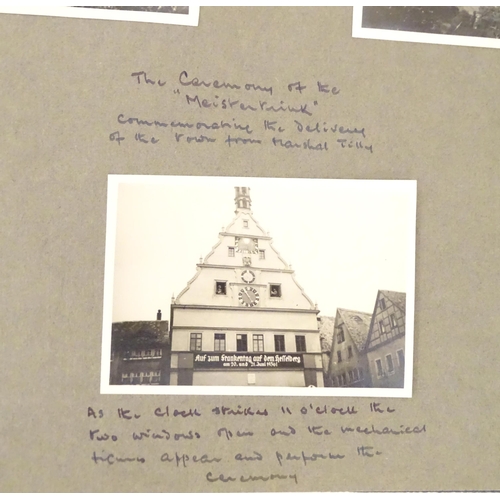 The Ceremony of the
"Meistertrink"
commemorating the delivery
of the town from Marshal Tilly
Auf zum Frankentag auf dem Hesselberg
am 20. und 21. Juni 1936!
As the clock strikes 11 o'clock the
two windows open and the mechanical
figures appear and perform the
ceremony